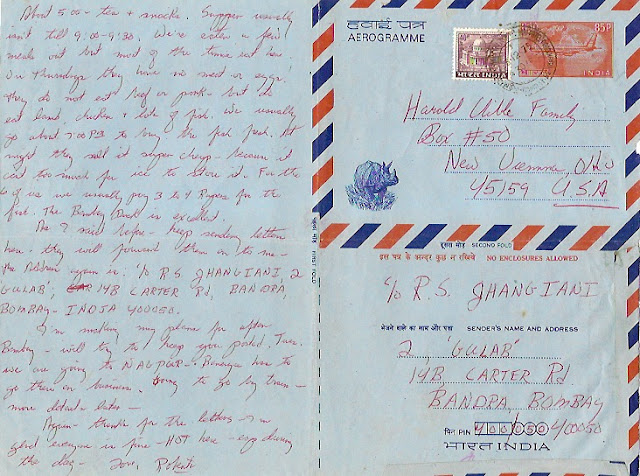 About 5:00 - tea + snacks. Supper usually
isn't till 9:00-9:30. We've eaten a few
meals out but most of the time eat here.
On Thursdays they have no meat or eggs.
They do not eat beef or pork - but do
eat lamb, chicken + lots of fish. We usually
go about 7:00 PM to buy the fish fresh. At
night they sell it super cheap - because it
cost too much for ice to store it. For the
6 of us we usually pay 3 to 4 Rupees for the
fish. The Bombay Duck is excellent.
As I said before - keep sending letters
here - they will forward them on to me -
the Address again is: c/o R.S. JHANGIANI, 2
GULAB', 14B CARTER Rd, BANDRA,
BOMBAY - INDIA 400050.
I'm making my plans for after
Bombay - will try to keep you posted. Tues.
we are going to NAGPUR - has to
go there on business. Going to go by train -
more details later -
Again - thanks for the letters - I'm
glad everyone is fine - HOT here - esp during
the day - Love,
FIRST FOLD
हवाई पत्र
AEROGRAMME
भारत INDIA
85P
INDIA
Harold Uible Family
Box #50
New Vienna, Ohio
45159 U.S.A
दूसरा मोड़ SECOND FOLD
इस पत्र के अन्दर कुछ न रखिये NO ENCLOSURES ALLOWED
c/o R.S. JHANGIANI
भेजने वाले का नाम और पता SENDER'S NAME AND ADDRESS
2, 'GULAB'
14B CARTER Rd
BANDRA BOMBAY
पिन PIN 400050 400050
भारत INDIA